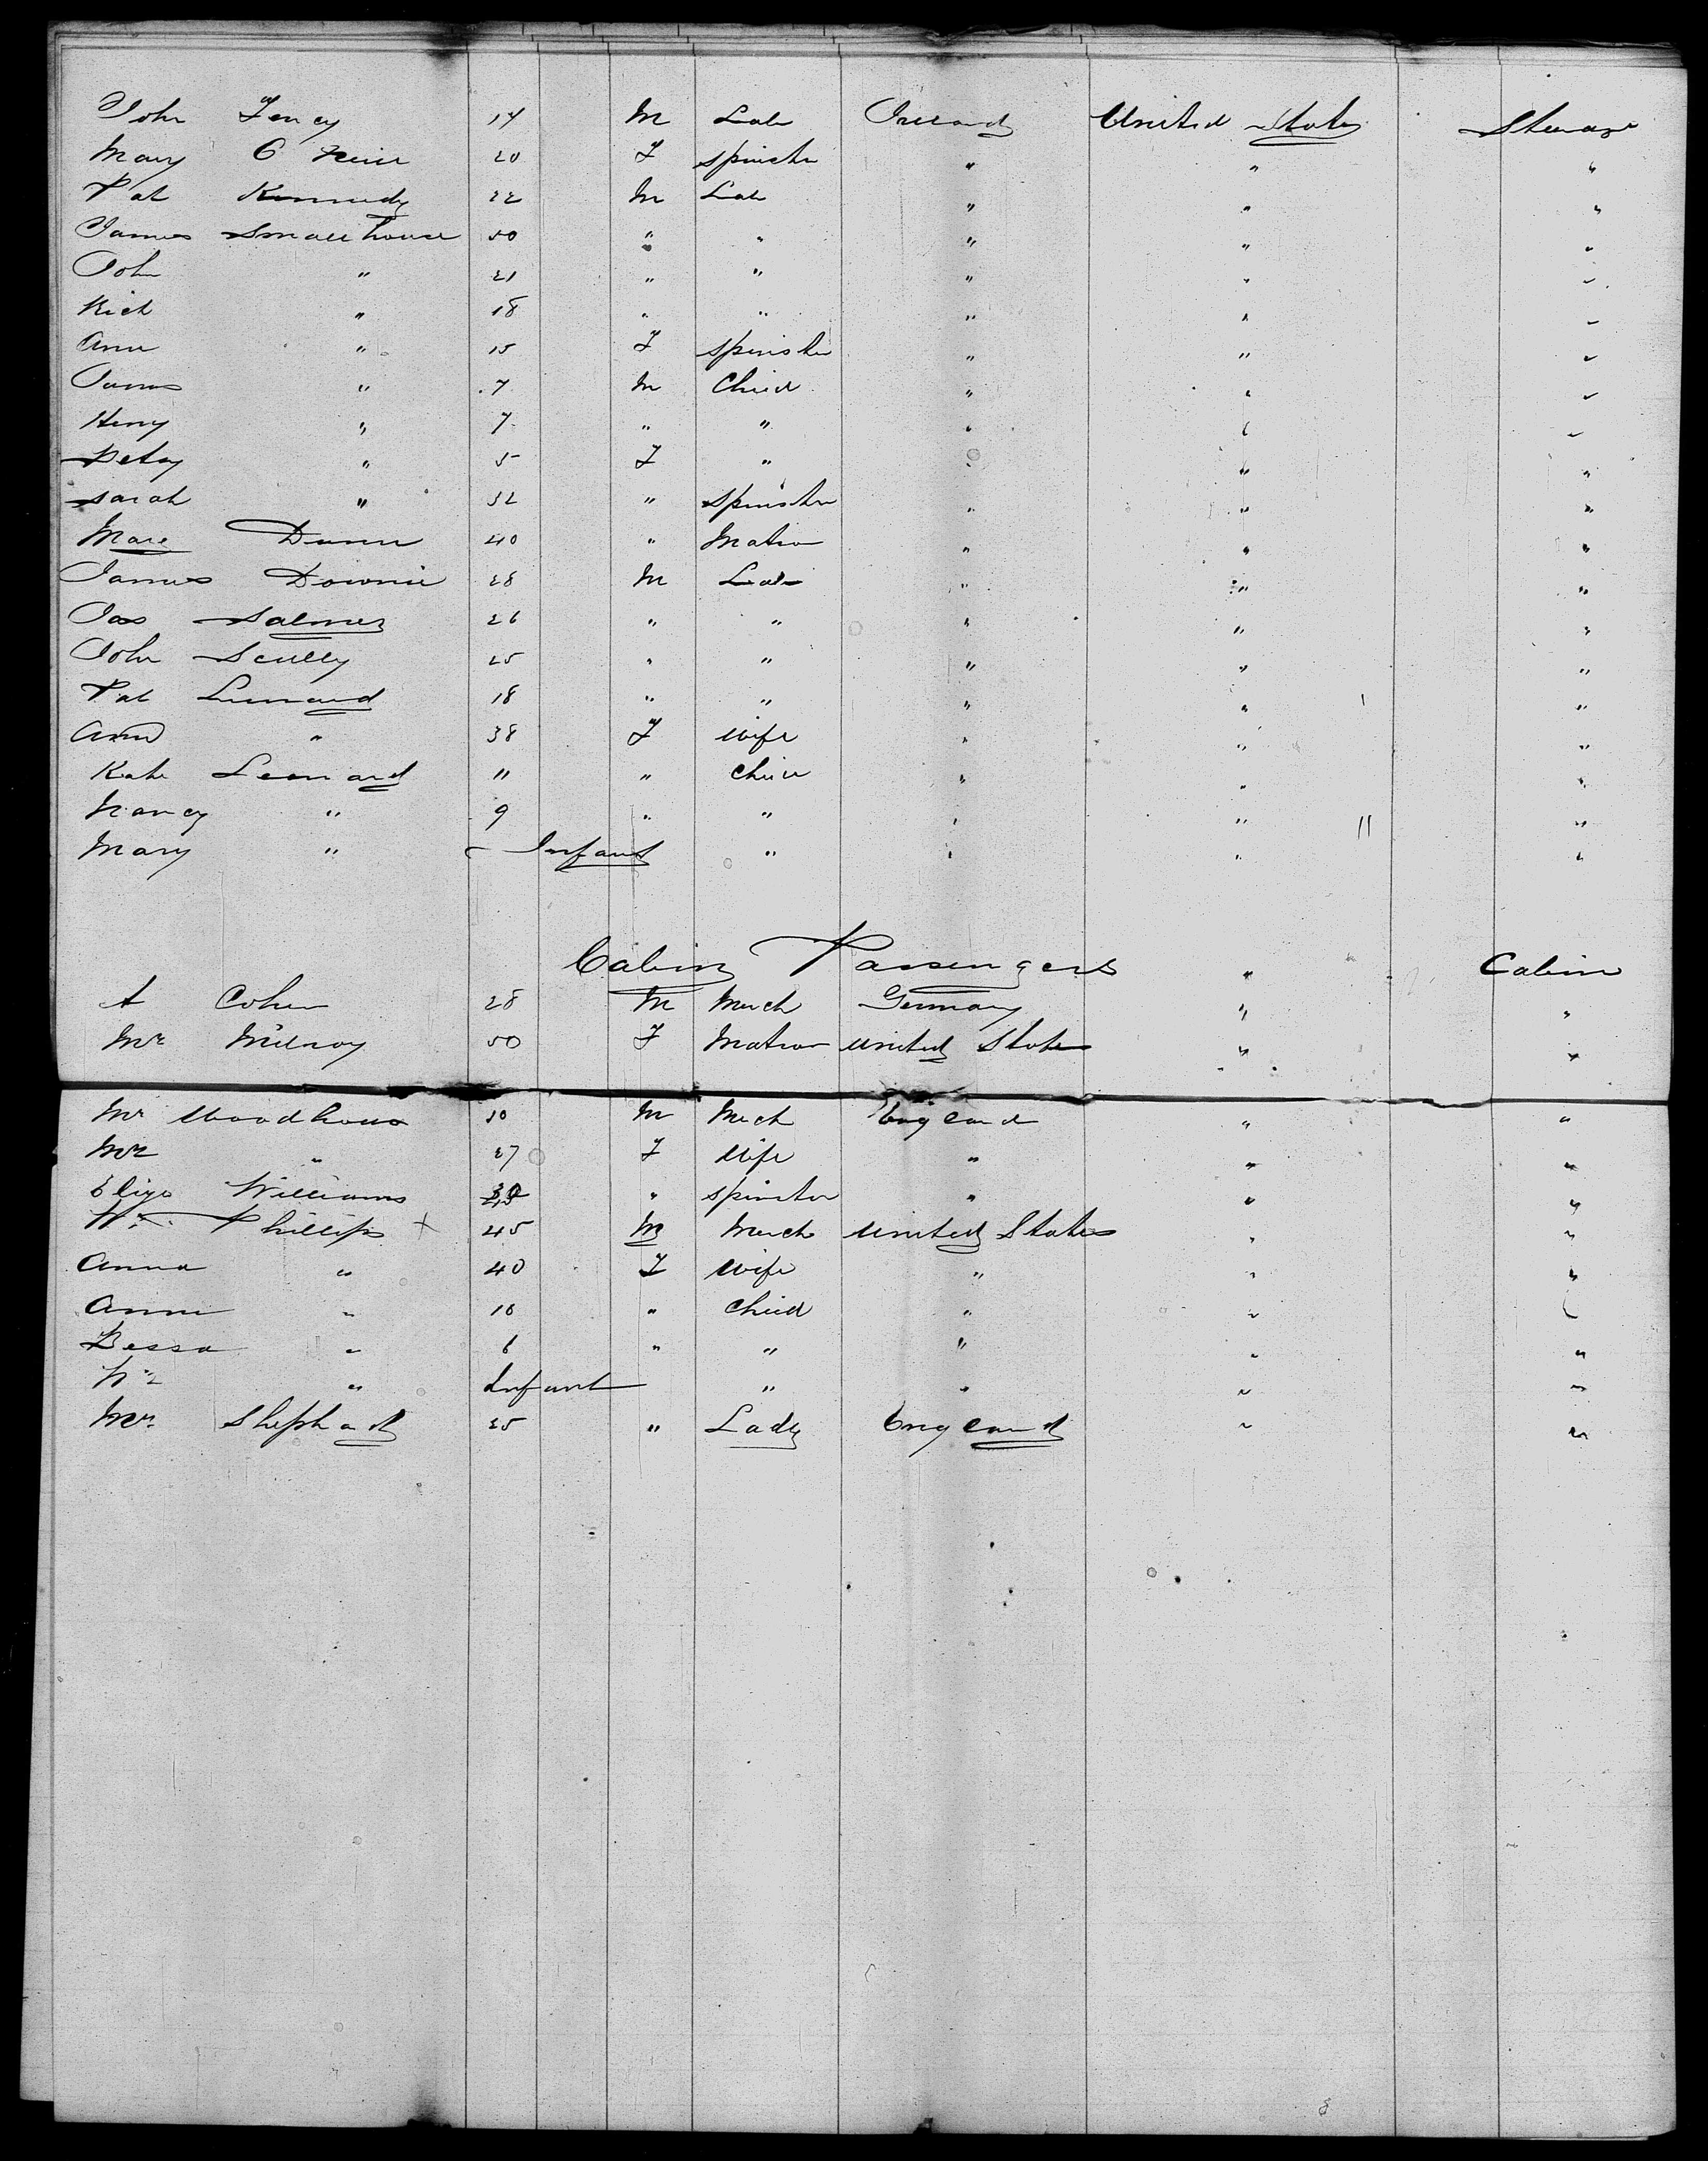 John Fency 14 M Lab Ireland United States Steerage
Mary O Neill 20 F Spinster " " "
Pat Kennedy 22 M Lab " " "
James Smallhouse 50 " " " " "
John " 21 " " " " "
Rich " 18 " " " " "
Ann " 15 F Spinster " " "
James " 7 M Child " " "
Henry " 7 " " " " "
Betsy " 5 F " " " "
Sarah " 32 " Spinster " " "
Dunn 40 " Matron " " "
James Downie 28 M Lab " " "
Jas 26 " " " " "
John Scully 25 " " " " "
Pat Lennard 18 " " " " "
Ann " 38 F Wife " " "
Kate Leonard 11 " Child " " "
Nancy " 9 " " " " "
Mary " Infant " " " "
Cabin Passengers " Cabin
A Cohen 28 M Merch Germany " "
Milroy 50 F Matron United States " "
Mr Woodhouse 30 M Merch England " "
Mrs " 27 F Wife " " "
Eliza Williams " Spinster " " "
Wm Phillips + 45 M Merch United States " "
Anna " 40 F Wife " " "
Annie " 10 " Child " " "
Bessa " 6 " " " " "
Wm " Infant " " " "
Mrs Shephard 25 " Lady England " "